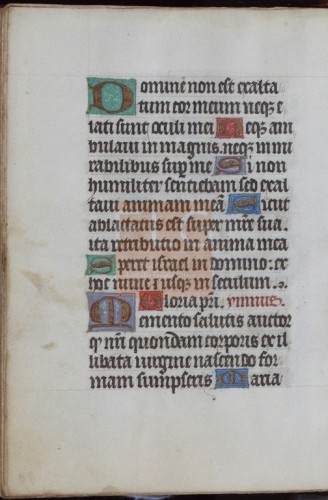 Domine non est exalta
tum cor meum neqꝫ e
lati sunt oculi mei Neqꝫ am
bulaui in magnis. neqꝫ in mi
rabilibus supᷣ me Si non
humiliter sentiebam sed exal
taui animam meā Sicut
ablactatus est super mr̄e sua.
ita retributio in anima mea
Speret israel in domino: ex
hoc nunc ⁊ usqꝫ in seculum.
Gloria pr̄i. ymnus.
Memento salutis auctor
qꝫ nr̄i quondam corporis ex il
libata uirgine nascendo for
mam sumpseris Maria